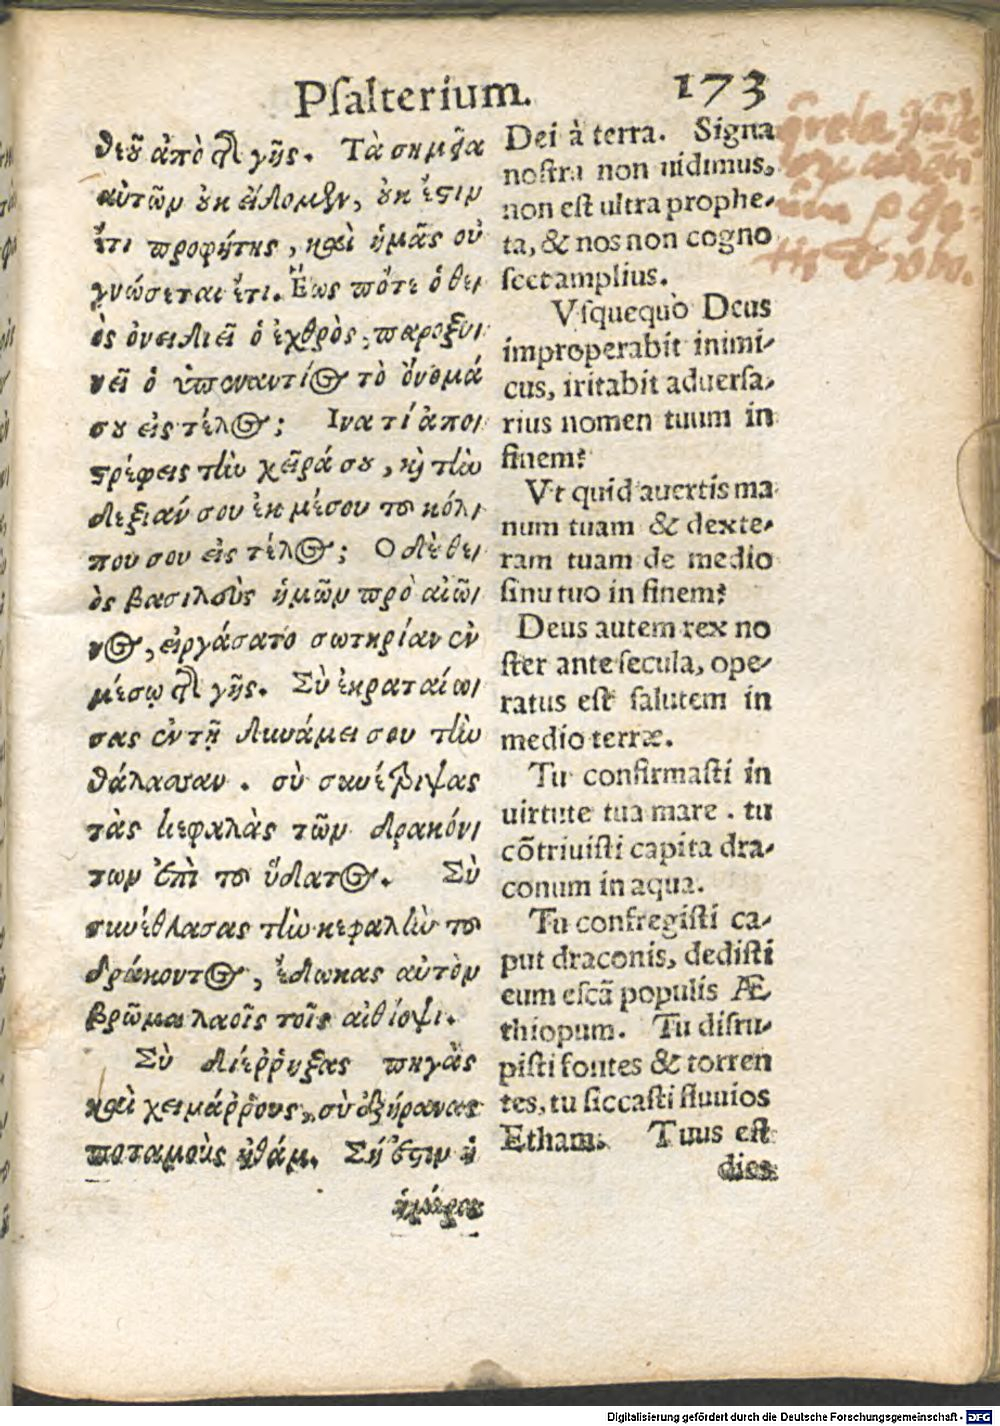 Psalterium. 173
θεοῦ ἀπὸ τῆς γῆς. Τὰ σημεῖα
αὐτῶν οὐκ εἴδομεν, οὐκ ἔστιν
ἔτι προφήτης, καὶ ἡμᾶς οὐ
γνώσεται ἔτι. Ἕως πότε ὁ θε-
ὸς ὀνειδιεῖ ὁ ἐχθρὸς, παροξυ-
νεῖ ὁ ὑπεναντίος τὸ ὄνομά
σου εἰς τέλος; Ινα τί ἀπο-
στρέφεις τὴν χεῖρά σου, καὶ τὴν
δεξιάν σου ἐκ μέσου τοῦ κόλ-
που σου εἰς τέλος; Ο δὲ θε-
ὸς βασιλεὺς ἡμῶν πρὸ αἰῶ-
νος, εἰργάσατο σωτηρίαν ἐν
μέσῳ τῆς γῆς. Σὺ ἐκραταίω-
σας ἐν τῇ δυνάμει σου τὴν
θάλασσαν. σὺ συνέτριψας
τὰς κεφαλὰς τῶν δρακόν-
των ἐπὶ τοῦ ὕδατος. Σὺ
συνέθλασας τὴν κεφαλὴν τοῦ
δράκοντος, ἔδωκας αὐτὸν
βρῶμα λαοῖς τοῖς αἰθίοψι.
Σὺ διέῤῥηξας πηγὰς
καὶ χειμάῤῥους, σὺ ἐξήρανας
ποταμοὺς ἠθάμ. Σή ἐστιν ἡ
ἡμέρα
Dei à terra. Signa
nostra non uidimus,
non est ultra prophe-
ta, & nos non cogno
scet amplius.
Vsquequò Deus
improperabit inimi-
cus, iritabit aduersa-
rius nomen tuum in
finem?
Vt quid auertis ma
num tuam & dexte-
ram tuam de medio
sinu tuo in finem?
Deus autem rex no
ster ante secula, ope-
ratus est salutem in
medio terræ.
Tu confirmasti in
uirtute tua mare. tu
cōtriuisti capita dra-
conum in aqua.
Tu confregisti ca-
put draconis, dedisti
eum escā populis Æ
thiopum. Tu disru-
pisti fontes & torren
tes, tu siccasti fluuios
Etham. Tuus est
dies
Digitalisierung gefördert durch die Deutsche Forschungsgemeinschaft - DFG